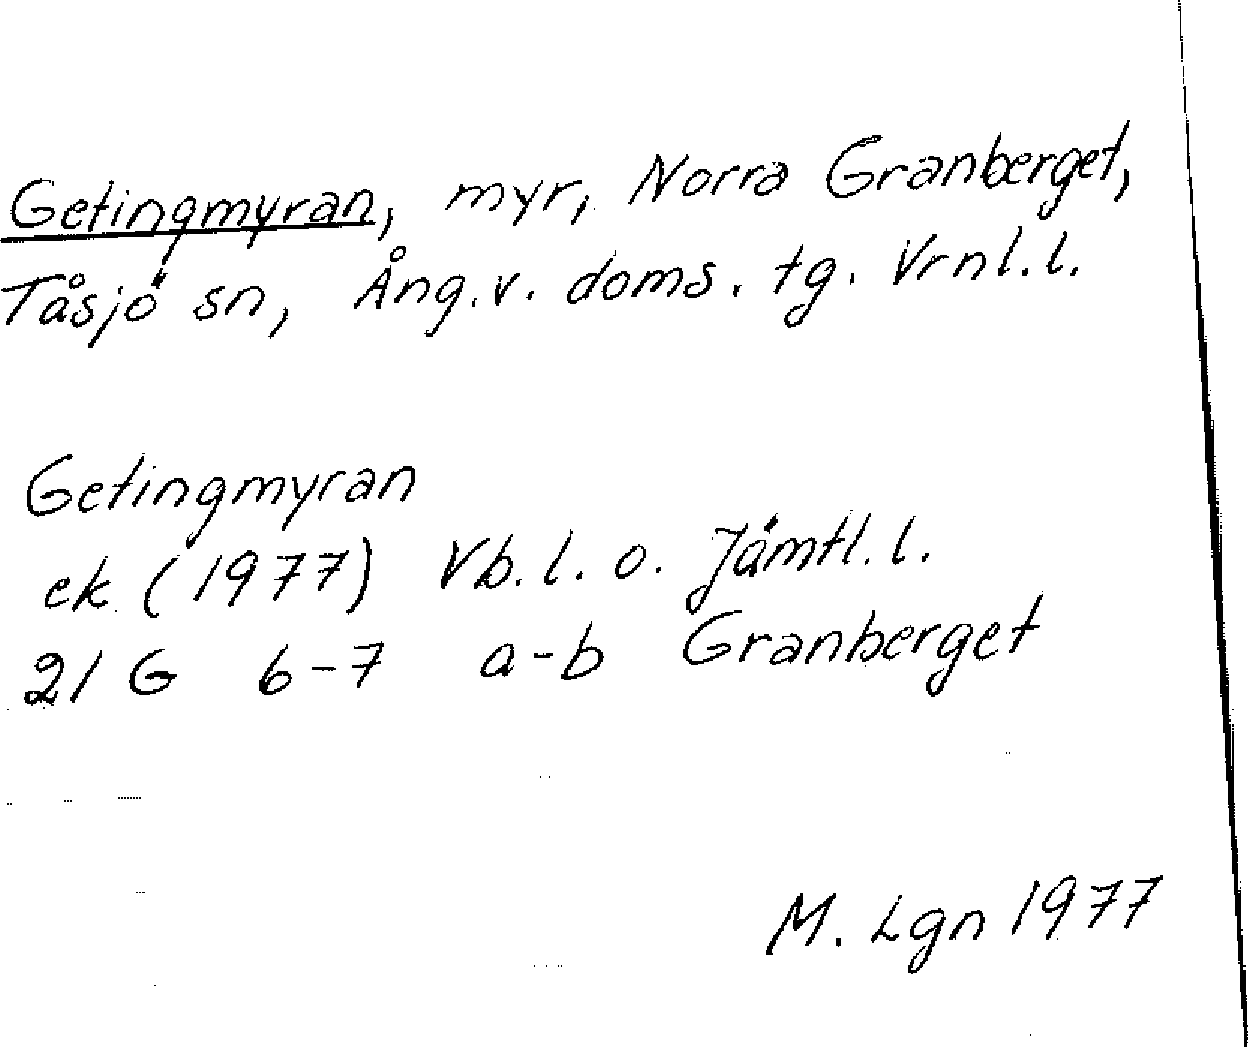 Getingmyran, myr, Norra Granberget,
Tåsjö sn, Ång.v. doms. tg. Vrnl.l.
Getingmyran
ek (1977) Vb.l. o. Jämtl.l.
21 G 6-7 a-b Granberget
M. Lgn 1977